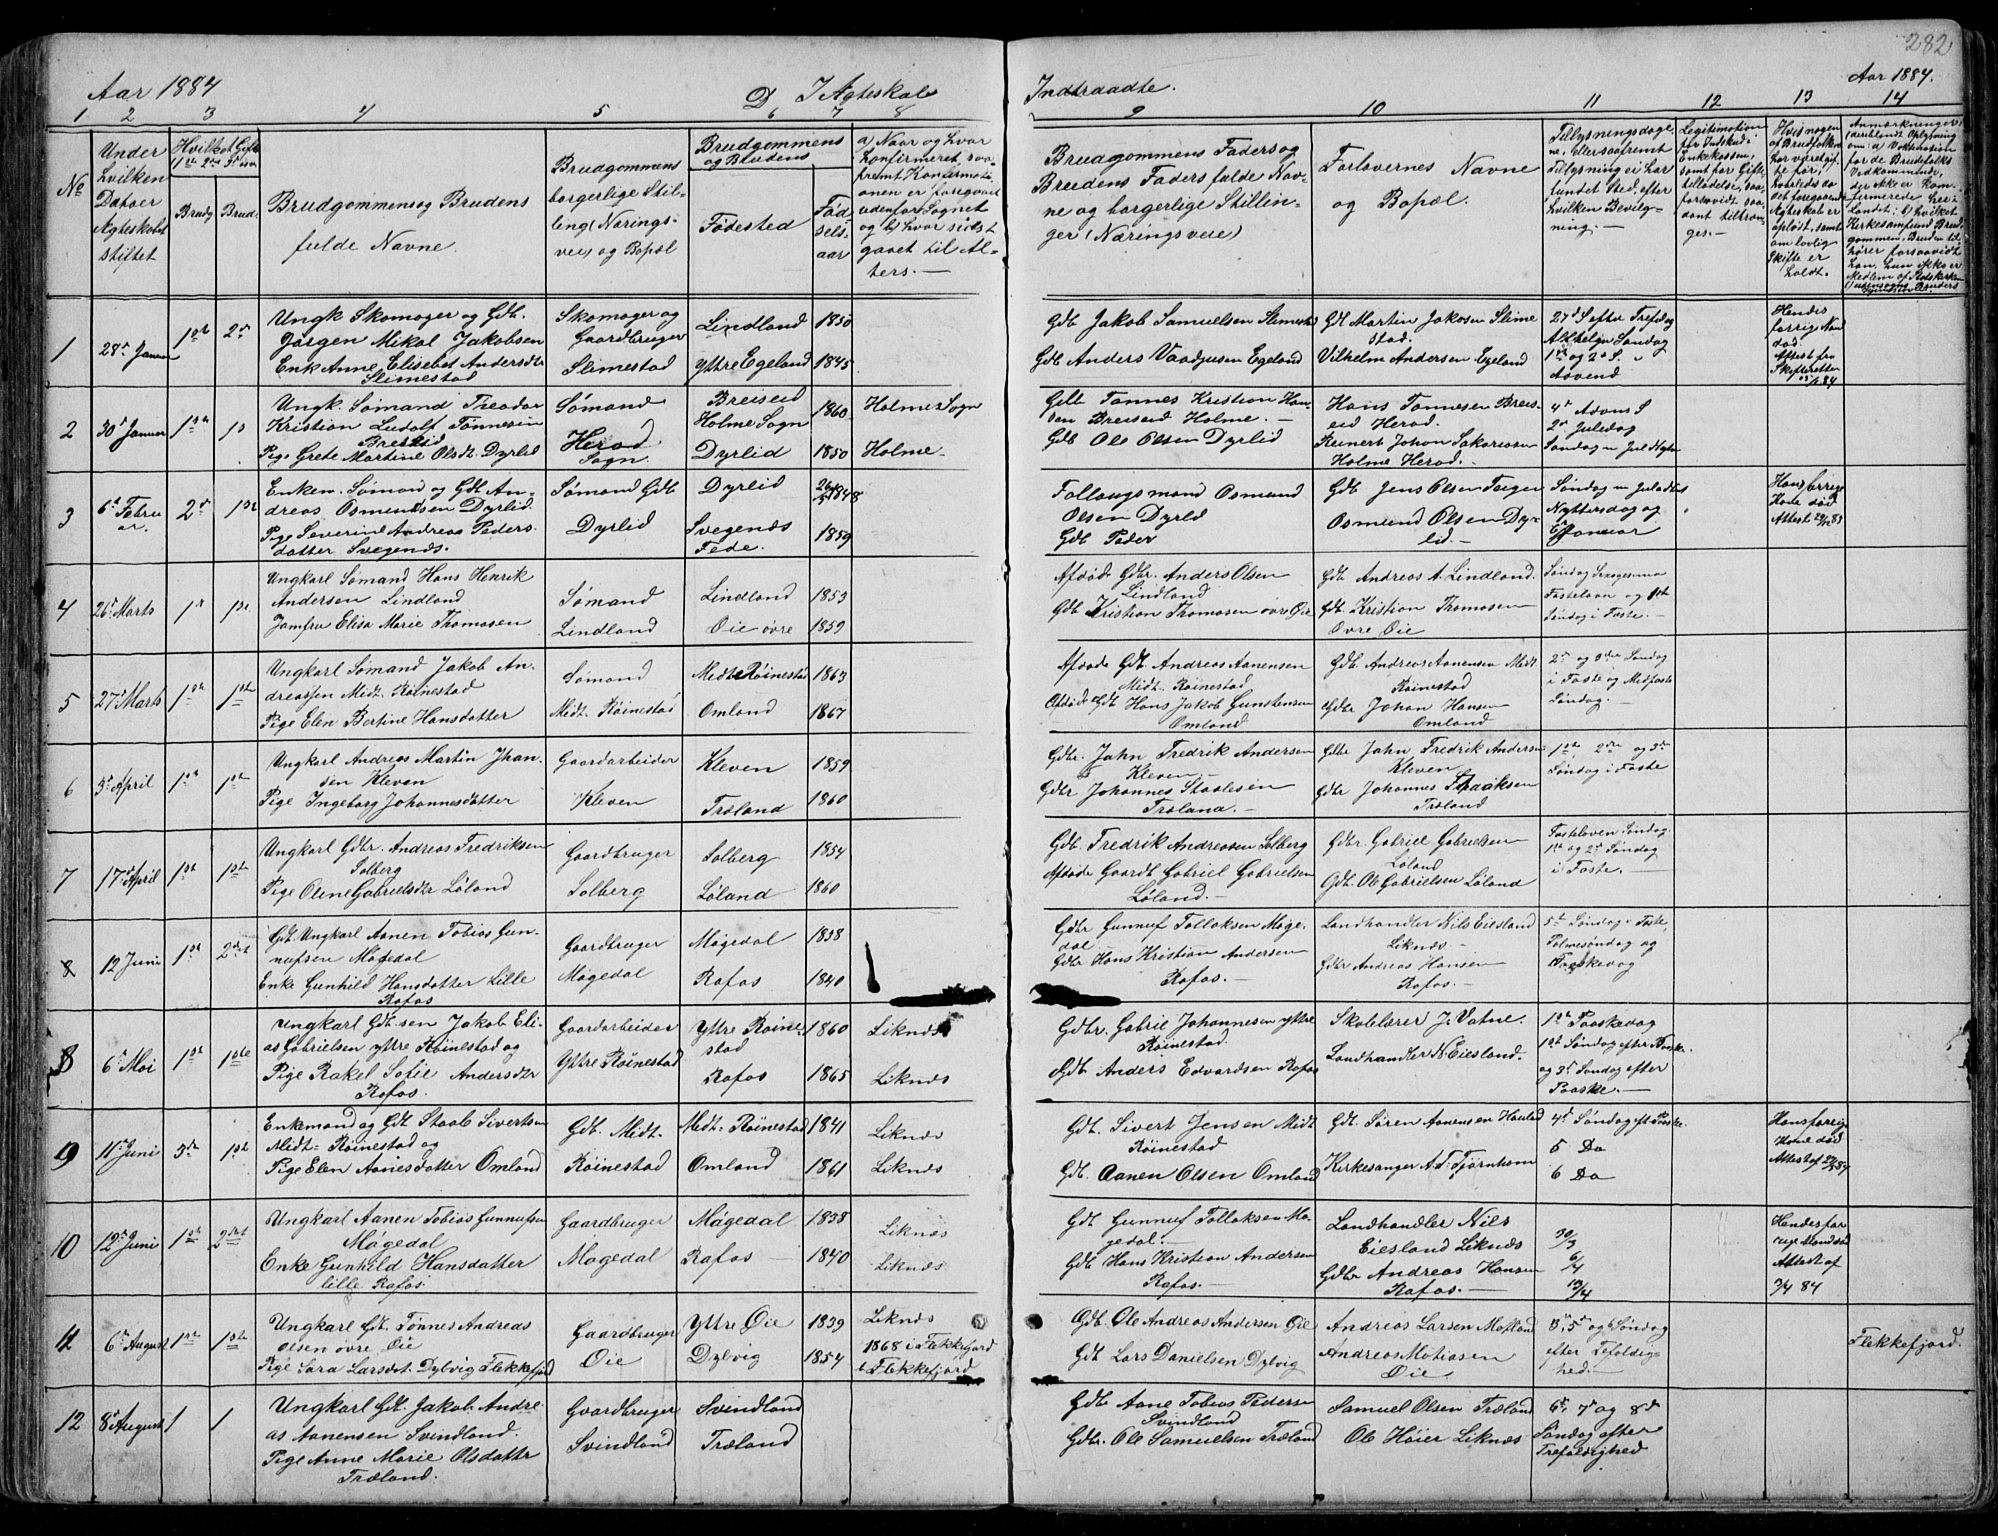 282
Aar 1884
D. I Ægteskab
Indtraadte.
Aar 1884.
1 2 3 4 5 6 7 8
9 10 11 12 13 14
№
Under
hvilken
Dato er
Ægteskabet
stiftet
Hvilket Gifte
Brudg Brud.
Brudgommens og Brudens
fulde Navne.
Brudgommens
borgerlige Stil-
ling (Nærings-
vei) og Bopæl
Brudgommens
og Brudens
Fødested
Fød
sels-
aar
a) Naar og hvor
konfirmeret, saa-
fremt Konfirmati-
onen er foregaaet
udenfor Sognet
og b) hvor sidst
gaaet til Al-
ters.—
Brudgommens Faders og
Brudens Faders fulde Nav-
ne og borgerlige Stillin-
ger (Næringsveie)
Forlovernes Navne
og Bopæl.
Tillysningsdage-
ne, eller saafremt
Tillysning ei har
fundet Sted, efter
hvilken Bevilg-
ning.—
Legitimation
for Indskud i
Enkekassen,
samt for Gifte
tilladelse, saa
forsovidt saa-
dant tiltræn-
ges.—
Hvis nogen
af Brudfolkene
har været gif-
te før,
hvorledes da
det foregaaende
Ægteskab er
opløst, samt
om lovlig
Skifte er
holdt.
Anmærkninger,
1
28de Januar
1ste 2den
Ungk Skomager og Gdb.
Jørgen Mikal Jakobsen
Enk Anne Elisabet Andersdtr
Slimestad
Skomager og
Gaardbruger
Slimestad
Lindland 1850
Yttre Egeland 1845
Gdb Jakob Samuelsen Slimestad
Gdb Anders Vaadjusen Egeland
Gdb Martin Jakobsen Slime
stad.
Vilhelm Andersen Egeland
27de S efter Trefdag
Alhelgn Søndag
1ste og 2den S.
Advend
Hendes
forrige Man
død.
Attest fra
Skifteretten
2
30te Januar
1ste 1ste
Ungk. Sømand Theodor
Kristian Ludolf Tønnesen
Breiseid
Pige Grete Martine Olsdt. Dyrlid
Sømand
Herad
Sogn.
Breiseid
Holme Sogn 1860
Dyrlid 1850
Holme Sogn
Holme.
Gdb Tønnes Kristian Han-
sen Breiseid Holme.—
Gdb Ole Olsen Dyrlid
Hans Tønnesen Breis-
eid Herad.
Reinert Johan Sakariasen
Holme Herad.—
4de Advens S
2den Juledag
Søndag m Jul Nytaar
3
6te Febru
ar.
2den 1ste
Enkem. Sømand og Gdb An-
dreas Osmundsen Dyrlid.
Pige Severine Andrea Peders-
datter Svegenæs.
Sømand Gdb
Dyrlid
Dyrlid 1848
Svegenæs
Fede. 1859
Follaugsmand Osmund
Olsen Dyrlid
Gdb Peder
Gdb Jens Olsen Teigen
Osmund Olsen Dyr-
lid.—
Søndag m Jul og Nyt
Nyttersdag og
Januar
Hans forrige
Kone død
Attest 29/12 83
4
26de Marts
1ste 1ste
Ungkarl Sømand Hans Henrik
Andersen Lindland
Jomfru Elisa Marie Thomasen
Sømand
Lindland
Lindland 1853
Øie øvre 1859
Afdøde Gdbr. Anders Olsen
Lindland
Gdb Kristian Thomasen øvre Øie
Gdb Andreas A. Lindland.
Gdb Kristian Thomasen
Øvre Øie
Søndag Sexagesima
Fastelavn og 1ste
Søndag i Faste.—
5
27de Marts
1ste 1ste
Ungkarl Sømand Jakob An-
dreassen Midt. Røinestad
Pige Elen Bertine Hansdatter
Sømand
Midt. Røinestad
Midt. Røinestad 1863
Omland 1867
Afdøde Gdb Andreas Aanensen
Midt. Røinestad
Afdøde Gdb Hans Jakob Gunstensen
Omland
Gdb Andreas Aanensen Midt.
Røinestad
Gdbr Johan Hansen
Omland
2den og 3die Søndag
i Faste og Midfaste
Søndag.—
6
3de April
1ste 1ste
Ungkarl Andreas Martin Jhan-
sen Kleven
Pige Ingeborg Johannesdatter
Gaardarbeider
Kleven
Kleven 1859
Træland 1860
Gdbr. Jahn Fredrik Andersen
Kleven—
Gdbr Johannes Staalesen
Træland.—
Gdbr Jahn Fredrik Andersen
Kleven
Gdbr Johannes Isaaksen
Træland
1ste 2den og 3die
Søndag i Faste
7
17de April
1ste 1ste
Ungkarl Gdbr. Andreas Fredriksen
Solberg
Pige Oline Gabrielsdtr Løland
Gaardbruger
Solberg
Solberg 1854
Løland 1860
Gdb. Fredrik Andreasen Solberg
Afdøde Gaardb Gabriel Gabrielsen
Løland.—
Gdbr Gabriel Gabrielsen
Løland
Gdb. Ole Gabrielsen Løland
Fastelaven Søndag
1ste og 2den Søndag
i Faste.—
8
12 Juni
1ste 2det
Gdb. Ungkarl Aanen Tobias Gun-
nufsen Møgedal
Enke Gunhild Hansdatter Lille
Rafos
Gaardbruger
Møgedal
Møgedal 1838
Rafos 1840
Gdbr Gunnuf Tollaksen Møge-
dal
Gdbr Hans Kristian Andersen
Rafos.—
Landhandler Nils Eiesland
Liknes—
Gdbr Andreas Hansen
Rafos.—
5te Søndag i Faste,
Palmesøndag og
Paaskedag
8
6te Mai
1ste 1ste
Ungkarl Gdb.sen Jakob Eli-
as Gabrielsen yttre Røinestad og
Pige Rakel Sofie Andersdtr
Rafos.
Gaardarbeider
Yttre Røinestad
Yttre Røine-
stad 1860
Rafos 1865
Liknes
Liknes
Gdbr. Gabriel Johannesen yttre
Røinestad.
Gdb Anders Edvardsen Rafos
Skolelærer J. Vatne.
Landhandler N. Eiesland.—
1ste Paaskedag
1ste Søndag efter Paaske.
og 3die Søndag efter
Paaske.—
9
11te Juni
3die 1ste
Enkemand og Gdb Staale Sivertsen
Midt- Røinestad og
Pige Elen Aanensdatter Omland
Gdb. Midt-
Røinestad
Midt. Røinestad 1841
Omland 1861
Liknes
Liknes
Gdb. Sivert Jensen Midt
Røinestad
Gdb. Aanen Olsen Omland
Gdb. Søren Aanensen Hauland
Kirkesanger A. T. Tjørnhom
4de Søndag eft Paaske.
5 Do
6 Do
Hans forrige
Kone død
Attest af
10
12te Juni
1ste 2det
Ungkarl Aanen Tobias Gunnufsen
Møgedal
Enke Gunhild Hansdatter
lille Rafos.
Gaardbruger
Møgedal
Møgedal 1838
Rafos 1840
Liknes
Liknes
Gdb Gunnuf Tollaksen Mø-
gedal.—
Gdb Hans Kristian Andersen
Rafos.—
Landhandler Nils
Eiesland Liknes
Gdbr Andreas Hansen
Rafos.—
30/3
6/4
13/4
Hendes for
rige Mand død
Attest af
3/4 84
11
6te August
1ste 1ste
Ungkarl Gdb. Tønnes Andreas
Olsen øvre Øie
Pige Sara Larsdt. Dylvig Flekkefjord
Gaardbruger
Øie
Yttre Øie 1839
Dylvig 1854
Liknes
1868 i Flekkefjord
i Flekkefjord
Gdb. Ole Andreas Andersen Øie
Gdb Lars Danielsen Dylvig
Andreas Larsen Møland
Andreas Matiasen
Øie
5te og 6 Søndag
efter Trefoldig-
hed.—
Flekkefjord.
12
8de August
1 1
Ungkarl Gdb. Jakob Andre
as Aanensen Svindland.
Pige Anne Marie Olsdatter
Træland.
Gaardbruger
Svindland
Svindland
Træland
Gdb Aane Tobias Pedersen
Svindland
Gdbr. Ole Samuelsen Træland
Samuel Olsen Træland
Ole Høier Liknes
6te, 7de og 8de
Søndag efter
Trefoldighed